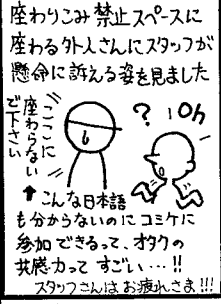 座わりこみ禁止スペースに
座わる外人さんにスタッフが
懸命に訴える姿を見ました
ここに
座わらない
で下さい
? Oh
↑こんな日本語
も分からないのにコミケに
参加できるって、オタクの
共感力ってすごい…!!
スタッフさんはお疲れさま!!!